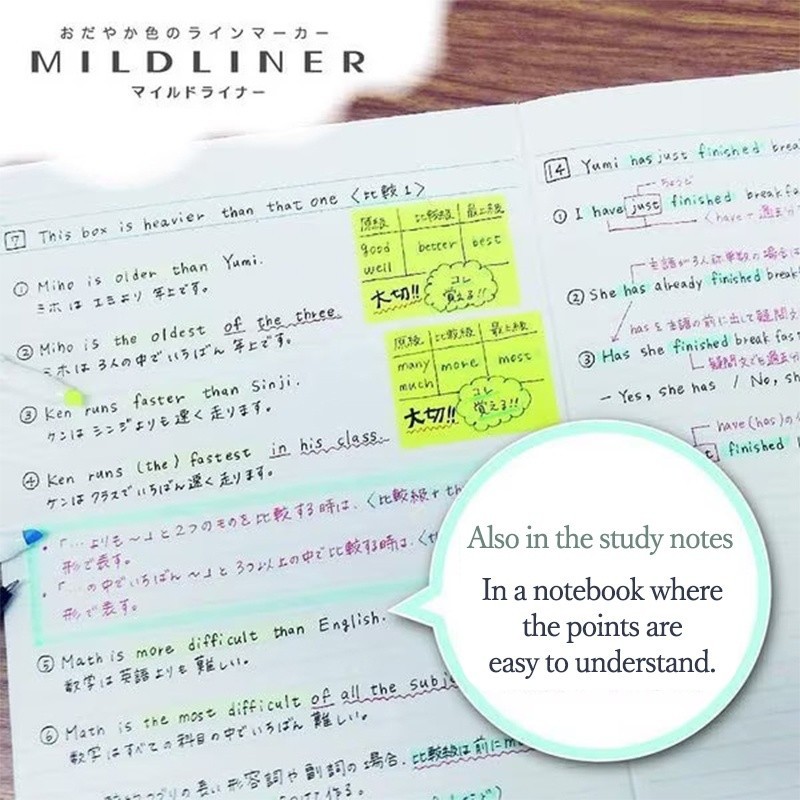 おだやか色のラインマーカー
MILDLINER
マイルドライナー
7 This box is heavier than that one 〈比較1〉
① Miho is older than Yumi.
ミホは ユミより 年上です。
② Miho is the oldest of the three.
ミホは 3人の中でいちばん 年上です。
③ Ken runs faster than Sinji.
ケンは シンジよりも 速く 走ります。
④ Ken runs (the) fastest in his class.
ケンは クラスで いちばん速く 走ります。
・「…よりも〜」と2つのものを比較する時は、〈比較級+th
形で表す。
・「…の中でいちばん〜」と3つ以上の中で比較する時は、〈th
形で表す。
⑤ Math is more difficult than English.
数学は 英語よりも 難しい。
⑥ Math is the most difficult of all the subj
数学は すべての 科目の中で いちばん 難しい。
の長い 形容詞や 副詞の 場合、比較級は前にm
原級 比較級 最上級
good better best
well
大切!! コレ
覚える!!
原級 比較級 最上級
many more most
much
大切!! コレ
覚える!!
14 Yumi has just finished brea
ちょうど
① I have just finished breakfa
〈have+過去分
主語が3人称単数の場合は
② She has already finished breakf
hasを主語の前に出して疑問文
③ Has she finished breakfast
疑問文でも過去分
– Yes, she has / No, sh
have(has)の
finished b
Also in the study notes
In a notebook where
the points are
easy to understand.